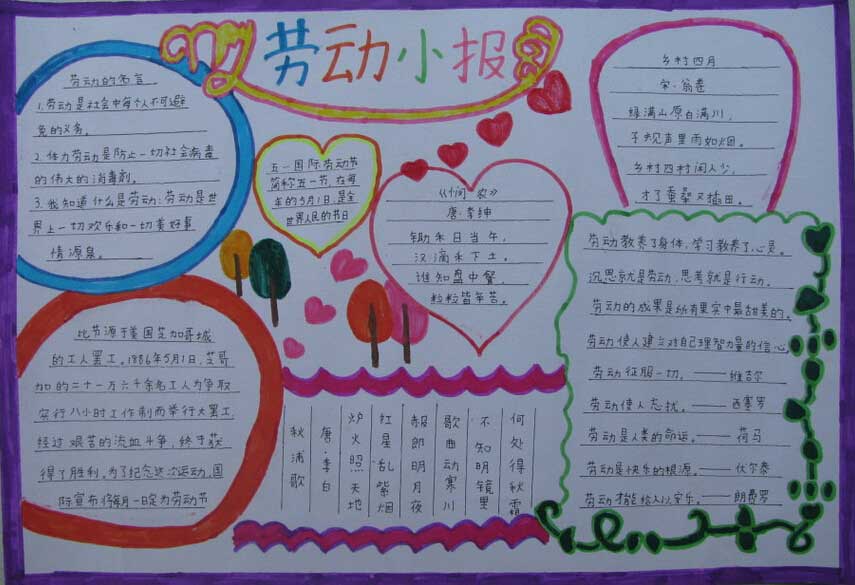 劳动小报
劳动的名言
1.劳动是社会中每个人不可避
免的义务。
2.体力劳动是防止一切社会病毒
的伟大的消毒剂。
3.我知道什么是劳动:劳动是世
界上一切欢乐和一切美好事
情源泉。
五一国际劳动节
简称五一节,在每
年的5月1日,是全
世界人民的节日
《悯农》
唐·李绅
锄禾日当午,
汉滴禾下土。
谁知盘中餐,
粒粒皆辛苦。
乡村四月
宋·翁卷
绿满山原白满川,
子规声里雨如烟。
乡村四村闲人少,
才了蚕桑又插田。
比节源于美国芝加哥城
的工人罢工。1886年5月1日,芝哥
加的二十一万六千余名工人为争取
实行八小时工作制而举行大罢工,
经过艰苦的流血斗争,终于获
得了胜利。为了纪念这次运动,国
际宣布将每月一日定为劳动节
秋浦歌
唐·李白
炉火照天地
红星乱紫烟
赧郎明月夜
歌曲动寒川
不知明镜里
何处得秋霜
劳动教养了身体,学习教养了心灵。
沉思就是劳动,思考就是行动。
劳动的成果是所有果实中最甜美的。
劳动使人建立对自己理智力量的信心。
劳动征服一切。——维吉尔
劳动使人忘忧。——西塞罗
劳动是人类的命运。——荷马
劳动是快乐的根源。——伏尔泰
劳动才能给人以安乐。——朗费罗